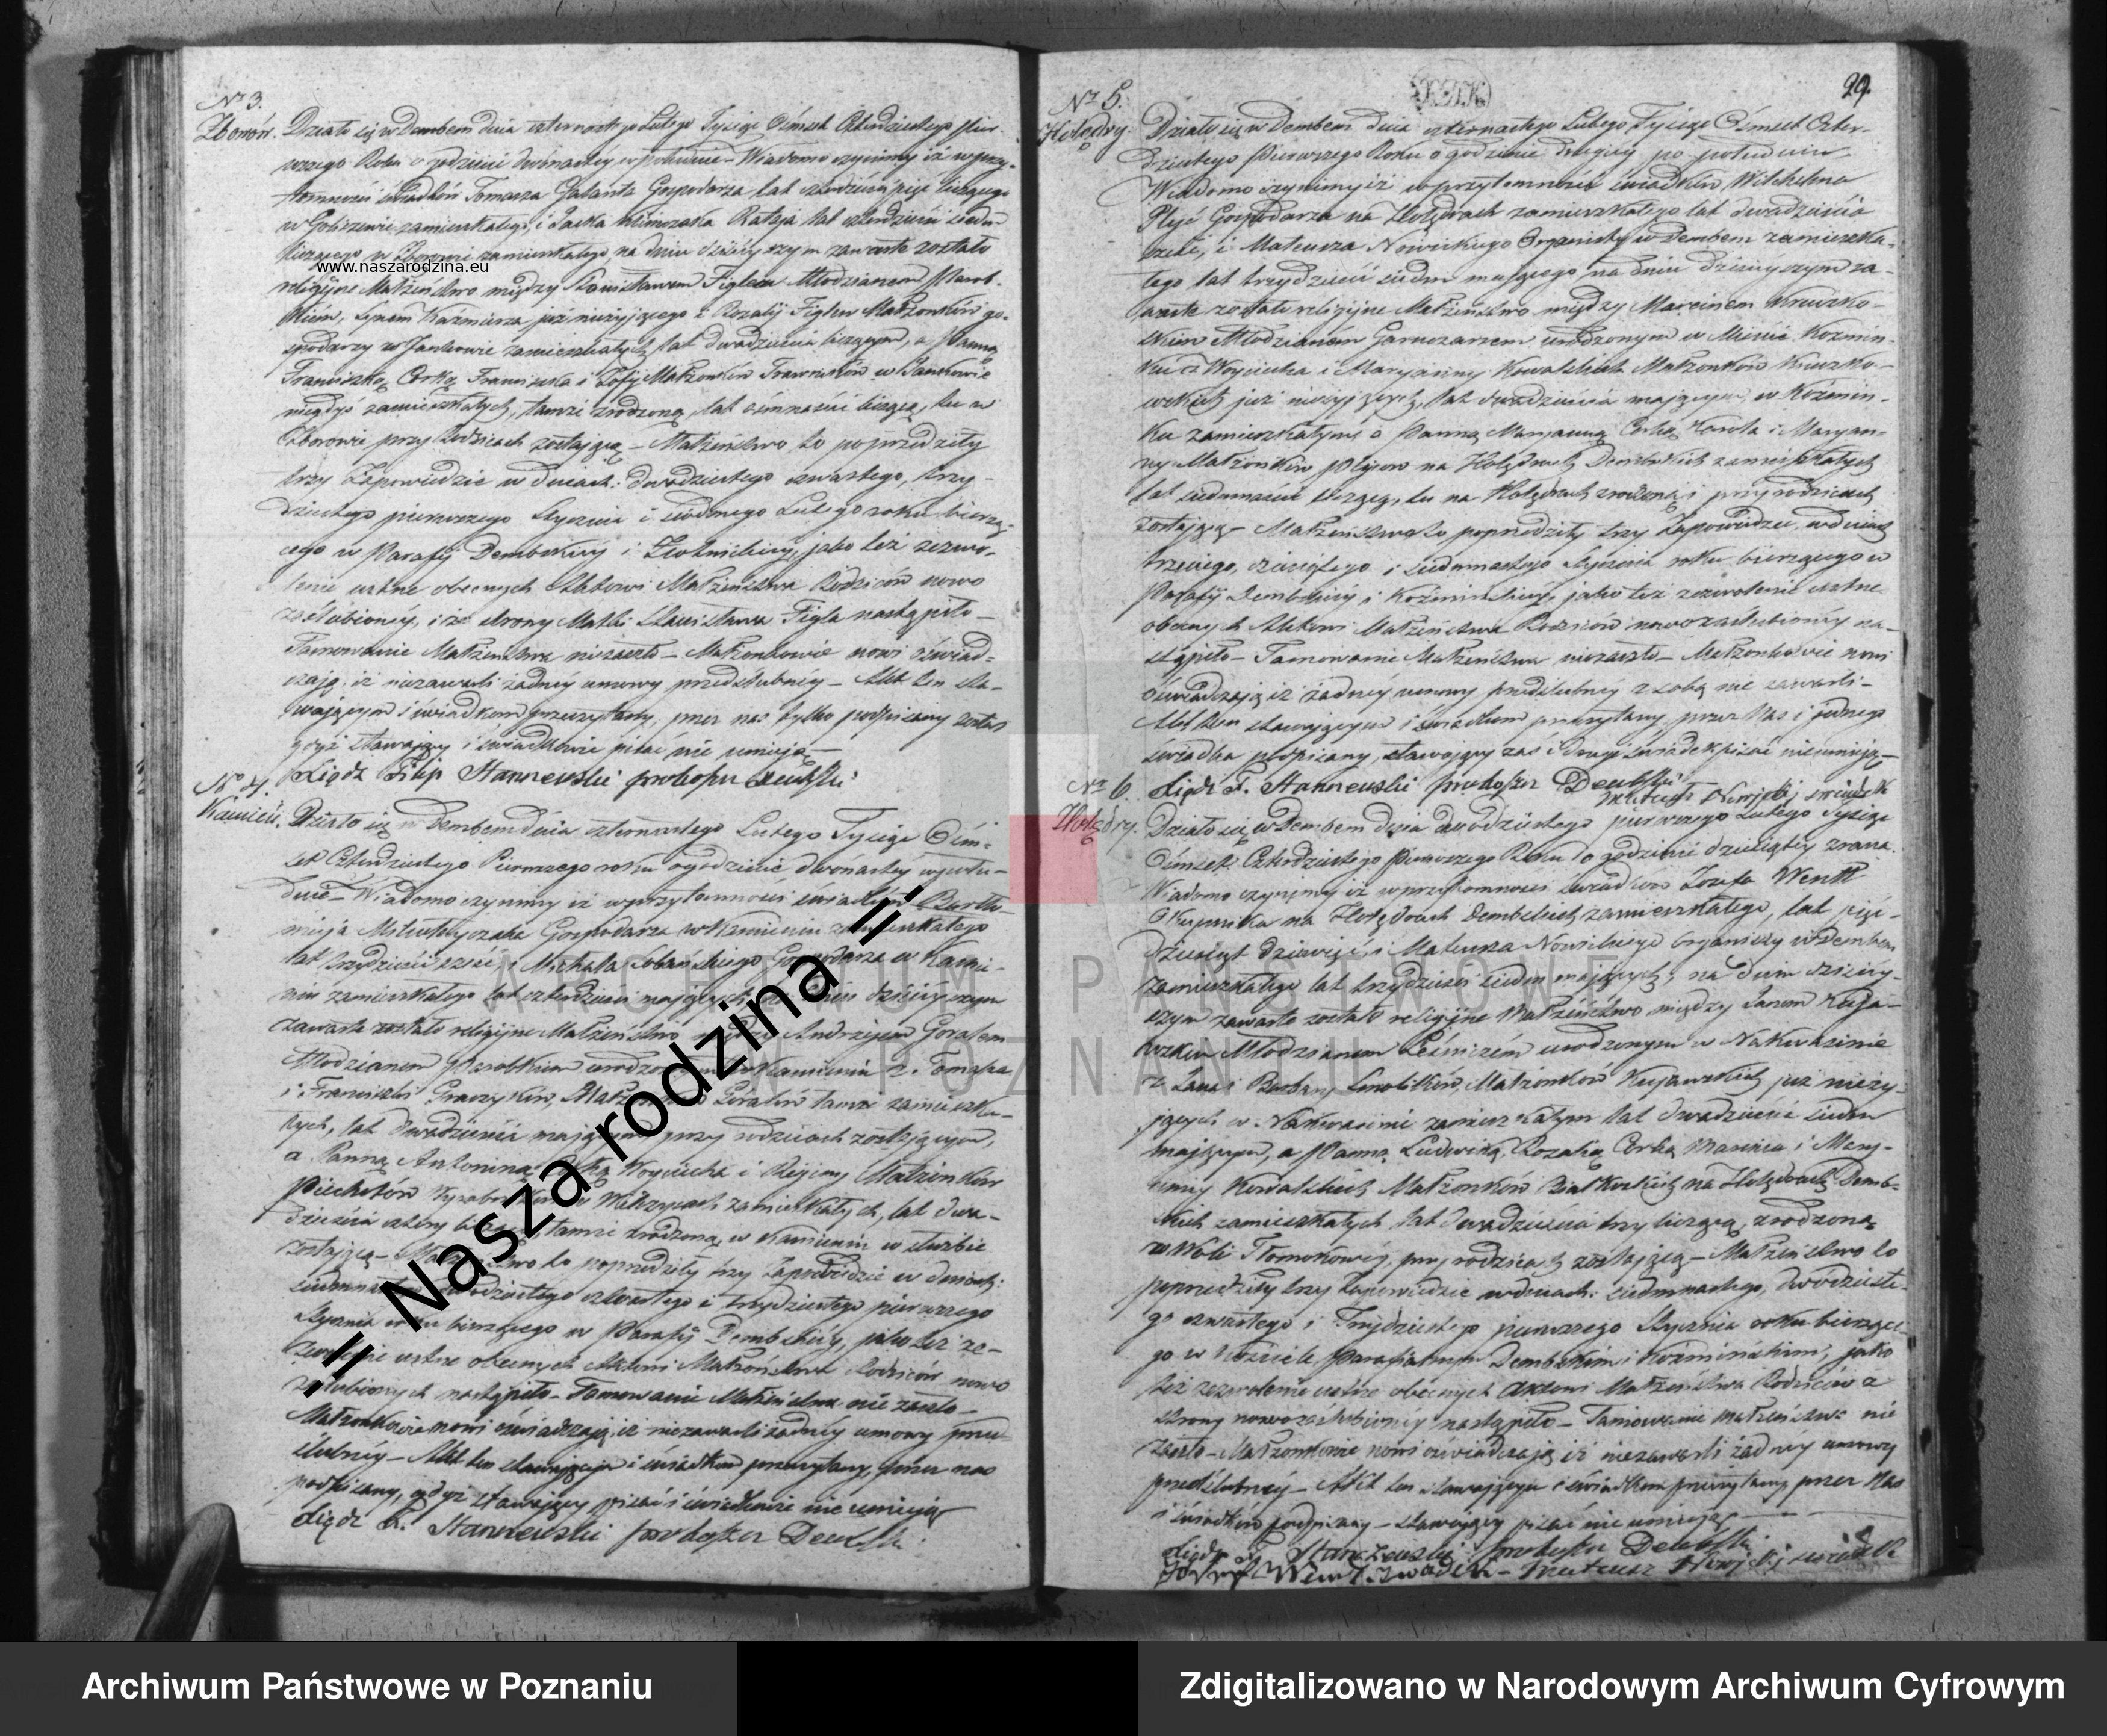 Nr 3.
Zborów. Działo się w Dembem dnia czternastego Lutego Tysiąc Ośmset Czterdziestego Pier-
wszego Roku o godzinie dwunastey w południe – Wiadomo czynimy iż w przy-
tomności świadków Tomasza Galanta Gospodarza lat
w zamieszkałego, i Jacka Klimczaka Rataja lat czterdzieści siedm
liczącego w Zborowie zamieszkałego, na dniu dzisieyszym zawarte zostało
www.naszarodzina.eu
religijne Małżeństwo między Stanisławem Figlem Młodzianem Parob-
kiem, Synem Kaźmierza już nieżyjącego i Rozalij Figlów Małżonków go-
spodarzy w Jankowie zamieszkałych, lat dwadzieścia liczącym, a Panną
Franciszką Corką Franciszka i Zofij Małżonków w Jankowie
niegdyś zamieszkałych, tamże zrodzoną, lat ośmnaście liczącą, tu w
Zborowie przy Rodzicach zostającą – Małżeństwo to poprzedziły
trzy Zapowiedzie w dniach: dwudziestego czwartego, trzy-
dziestego pierwszego Stycznia i siódmego Lutego roku bieżą-
cego w Parafij Dembskiey i Złotnickiey, jako też zezwo-
lenie ustne obecnych Aktowi Małżeństwa Rodziców nowo
zaślubioney, i ze strony Matki Stanisława Figla nastąpiło –
Tamowanie Małżeństwa niezaszło – Małżonkowie nowi oświad-
czają iż niezawarli żadney umowy przedślubney – Akt ten sta-
wającym i świadkom przeczytany, przez nas tylko podpisany został
gdyż stawający i świadkowie pisać nie umieją –
Xiądz Filip Stanneuski proboszcz Dembski
Nr 4.
Kamień. Działo się w Dembem dnia czternastego Lutego Tysiąc Ośm-
set Czterdziestego Pierwszego roku o godzinie dwunastey w połu-
dnie – Wiadomo czynimy iż w przytomności świadków Bartło-
mieja Gospodarza w Kamieniu zamieszkałego
lat trzydzieści sześć, i Michała Gospodarza w Kamie-
niu zamieszkałego lat czterdzieści mających, na dniu dzisieyszym
zawarte zostało religijne Małżeństwo między Andrzejem Goralem
Młodzianem Parobkiem urodzonym w Kamieniu z Tomasza
i Franciszki Małżonków Goralów tamże zamieszka-
łych, lat dwadzieścia mającym przy rodzicach zostającym,
a Panną Antoniną Corką Woyciecha i Reginy Małżonków
Piechotów zamieszkałych, lat dwa-
dzieścia cztery liczącą, tamże zrodzoną w Kamieniu w służbie
zostającą – Małżeństwo to poprzedziły trzy Zapowiedzie w dniach:
siedmnastego, dwudziestego czwartego i trzydziestego pierwszego
Stycznia roku bieżącego w Parafij Dembskiey, jako też ze-
zwolenie ustne obecnych Aktowi Małżeństwa Rodziców nowo
zaślubionych nastąpiło – Tamowanie Małżeństwa nie zaszło –
Małżonkowie nowi oświadczają iż niezawarli żadney umowy przed-
ślubney – Akt ten stawającym i świadkom przeczytany, przez nas
podpisany, gdyż stawający pisać i świadkowie nie umieją
Xiądz F. Stanneuski proboszcz Dembski
29
Nr 5.
Holędry. Działo się w Dembem dnia czternastego Lutego Tysiąc Ośmset Czter-
dziestego Pierwszego Roku o godzinie drugiey po południu
Wiadomo czynimy iż w przytomności świadków Wilchelma
Gospodarza na Holędrach zamieszkałego lat dwadzieścia
i Mateusza Nowickiego Organisty w Dembem zamieszka-
łego lat trzydzieści siedm mającego na dniu dzisieyszym za-
warte zostało religijne Małżeństwo między Marcinem Kruczko-
wskim Młodzianem Garnczarzem urodzonym w Mieście Koźmin-
ku z Woyciecha i Maryanny Kowalskich Małżonków Kruczko-
wskich już nieżyjących, lat dwadzieścia mającym, w Koźmin-
ku zamieszkałym, a Panną Maryanną Corką Karola i Maryan-
ny Małżonków na Holędrach Dembskich zamieszkałych
lat siedmnaście liczącą, tu na Holędrach zrodzoną i przy rodzicach
zostającą – Małżeństwo to poprzedziły trzy Zapowiedzie w dniach
trzeciego, dziesiątego i siedmnastego Stycznia roku bieżącego w
Parafij Dembskiey i Koźminskiey, jako też zezwolenie ustne
obecnych Aktowi Małżeństwa Rodziców nowozaślubioney na-
stąpiło – Tamowanie Małżeństwa niezaszło – Małżonkowie nowi
oświadczają iż żadney umowy przedślubney z sobą nie zawarli –
Akt ten stawającym i świadkom przeczytany, przez Nas i jednego
świadka podpisany, stawający zaś i drugi świadek pisać nieumieją –
Xiądz F. Stanneuski proboszcz Dembski
Mateusz Nowicki świadek
Nr 6.
Holędry. Działo się w Dembem dnia dwudziestego pierwszego Lutego Tysiąc
Ośmset Czterdziestego Pierwszego Roku o godzinie dziesiątey zrana.
Wiadomo czynimy iż w przytomności świadków Jozefa Wentt
Okupnika na Holędrach Dembskich zamieszkałego, lat pięć-
dziesiąt dziewięć, i Mateusza Nowickiego Organisty w Dembem
zamieszkałego lat trzydzieści siedm mających, na dniu dzisiey-
szym zawarte zostało religijne Małżeństwo między Janem Kuja-
wskim Młodzianem Leśniczem urodzonym w Nakwasinie
z Jana i Małżonków Kujawskich już nieży-
jących w Nakwasinie zamieszkałym lat dwadzieścia siedm
mającym, a Panną Ludwiką Rozalią Corką Marcina i Mary-
anny Kowalskich Małżonków Białkoskich na Holędrach Demb-
skich zamieszkałych lat dwadzieścia trzy liczącą, zrodzoną
w Woli Tłomokowey, przy rodzicach zostającą – Małżeństwo to
poprzedziły trzy Zapowiedzie w dniach: siedmnastego, dwudzieste-
go czwartego i Trzydziestego pierwszego Stycznia roku bieżące-
go w kościele Parafialnym Dembskim i Koźminskim, jako
też zezwolenie ustne obecnych Aktowi Małżeństwa Rodziców z
strony nowozaślubioney nastąpiło – Tamowanie małżeństwa nie
zaszło – Małżonkowie nowi oświadczają iż niezawarli żadney umowy
przedślubney – Akt ten stawającym i świadkom przeczytany przez Nas
i świadków podpisany – stawający pisać nie umieją –
Xiądz F. Stanneuski proboszcz Dembski
Wentt świadek – Mateusz Nowicki świadek
= Nasza rodzina =
ARCHIWUM PAŃSTWOWE
W POZNANIU
Archiwum Państwowe w Poznaniu
Zdigitalizowano w Narodowym Archiwum Cyfrowym